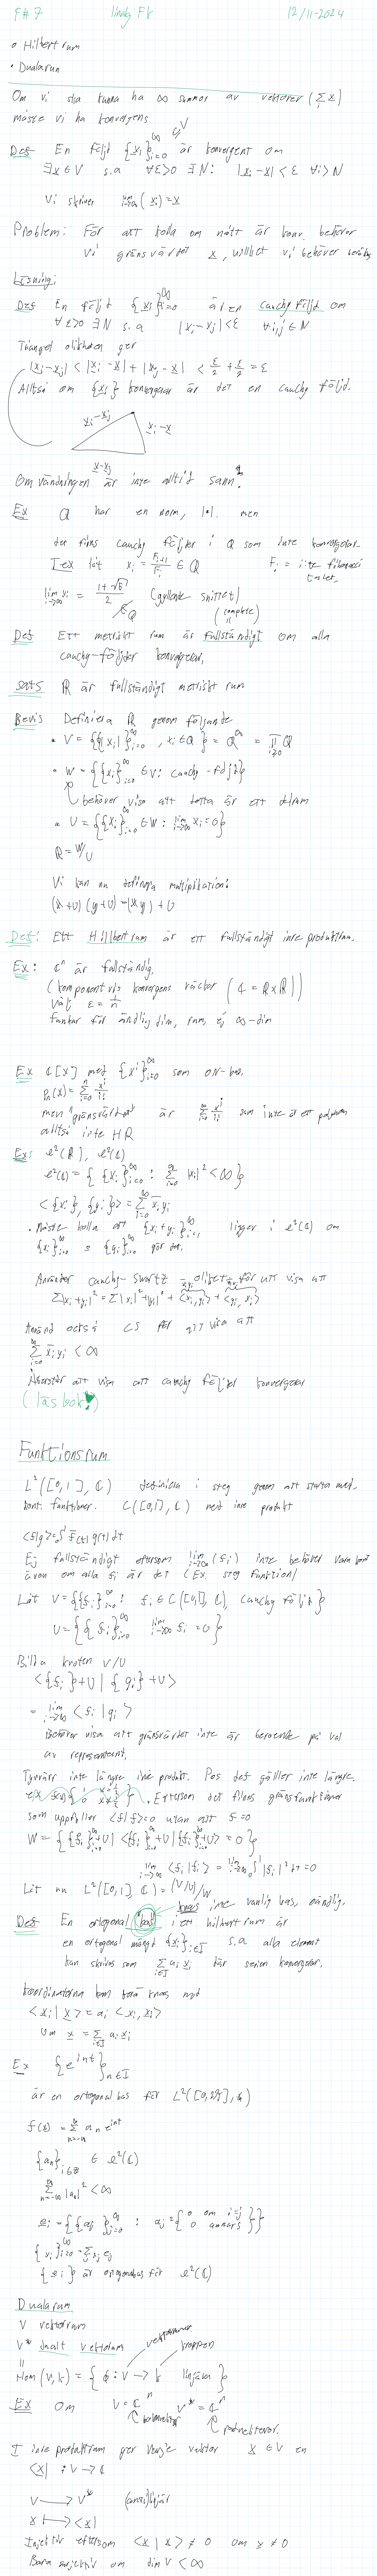 F#7 linalg F8 12/11-2024
• Hilbertrum
• Dualarum
Om vi ska kunna ha ∞ summor av vektorer (Σ x)
måste vi ha konvergens
Def En följd {x_i}_{i=0}^∞ ∈ V är konvergent om
∃x ∈ V s.a ∀ε>0 ∃N: |x_i - x| < ε ∀i>N
Vi skriver lim_{i→∞}(x_i) = x
Problem: För att kolla om nått är konv. behöver
vi gränsvärdet x, vilket vi behöver
Lösning:
Def En följd {x_i}_{i=0}^∞ är en cauchy följd om
∀ε>0 ∃N s.a |x_i - x_j| < ε ∀i,j ≥ N
Triangel olikheten ger
|x_i - x_j| < |x_i - x| + |x_j - x| < ε/2 + ε/2 = ε
Alltså om {x_i} konvergerar är det en cauchy följd.
x_i - x_j
x_i - x
x - x_j
Omvändningen är inte alltid sann!
Ex Q har en norm, |•|. men
det finns cauchy följder i Q som inte konvergerar.
T.ex låt x_i = F_{i+1}/F_i ∈ Q F_i = i:te fibonacci talet.
lim_{i→∞} x_i = (1+√5)/2 (gyllene snittet)
∉ Q
(complete)
Def Ett metriskt rum är fullständigt om alla
cauchy-följder konvergerar.
Sats R är fullständigt metriskt rum
Bevis Definiera R genom följande
• V = {{x_i}_{i=0}^∞, x_i ∈ Q} = Q^∞ = Π_{i≥0} Q
• W = {{x_i}_{i=0}^∞ ∈ V: cauchy-följd}
behöver visa att detta är ett delrum
• U = {{x_i}_{i=0}^∞ ∈ W: lim_{i→∞} x_i = 0}
R = W/U
Vi kan nu definiera multiplikation:
(x+U)(y+U) = (xy) + U
Def: Ett Hilbertrum är ett fullständigt inre produktrum.
Ex: C^n är fullständig.
(komponentvis konvergens räcker (C = R×R))
välj ε = 1/n
funkar för ändlig dim, rum, ej ∞-dim
Ex C[x] med {x^i}_{i=0}^∞ som ON-bas.
p_n(x) = Σ_{i=0}^n x^i/i!
men "gränsvärdet" är Σ_{i=0}^∞ x^i/i! som inte är ett polynom
alltså inte HR
Ex: ℓ²(R), ℓ²(C)
ℓ²(C) = {{x_i}_{i=0}^∞ : Σ_{i=0}^∞ |x_i|² < ∞}
<{x_i}, {y_i}> = Σ_{i=0}^∞ x̄_i y_i
• Måste kolla att {x_i + y_i}_{i=1}^∞ ligger i ℓ²(C) om
{x_i}_{i=0}^∞ o {y_i}_{i=0}^∞ gör det.
Använder cauchy-swartz olikhet för att visa att
Σ|x_i + y_i|² = Σ|x_i|² + |y_i|² + <x_i, y_i> + <y_i, x_i>
Använd också CS för att visa att
Σ_{i=0}^∞ x̄_i y_i < ∞
Återstår att visa att cauchy följder konvergerar
(läs bok!)
Funktionsrum
L²([0,1], C) definiera i steg genom att starta med.
kont. funktioner. C([0,1], C) med inre produkt
<f|g> = ∫_0^1 f̄(t) g(t) dt
Ej fullständigt eftersom lim_{i→∞}(f_i) inte behöver vara kont
även om alla f_i är det (Ex. steg funktion)
Låt V = {{f_i}_{i=0}^∞ : f_i ∈ C([0,1], C), cauchy följd}
U = {{f_i}_{i=0}^∞ lim_{i→∞} f_i = 0}
Bilda kvoten V/U
<{f_i} + U | {g_i} + U>
= lim_{i→∞} <f_i | g_i>
Behöver visa att gränsvärdet inte är beroende på val
av representant.
Tyvärr inte längre inre produkt. Pos def gäller inte längre.
Eftersom det finns gränsfunktioner
som uppfyller <f|f> = 0 utan att f = 0
W = {{f_i}_{i=0}^∞ + U | <{f_i}_{i=0}^∞ + U | {f_i}_{i=0}^∞ + U> = 0}
lim_{i→∞} <f_i | f_i> = lim_{i→∞} ∫_0^1 |f_i|² dt = 0
Låt nu L²([0,1], C) = (V/U)/W
inte vanlig bas, oändlig.
Def En ortogonal "bas" i ett hilbertrum är
en ortogonal mängd {x_i}_{i∈I} s.a alla element
kan skrivas som Σ_{i∈I} a_i x_i där serien konvergerar.
Koordinaterna kan beräknas med
<x_i | x> = a_i <x_i, x_i>
om x = Σ_{i∈I} a_i x_i
Ex {e^{int}}_{n∈Z}
är en ortogonal bas för L²([0,2π], C)
f(t) = Σ_{n=-∞}^∞ a_n e^{int}
{a_n}_{i∈Z} ∈ ℓ²(C)
Σ_{n=-∞}^∞ |a_n|² < ∞
e_i = {{a_j}_{j=0}^∞ : a_j = {0 om i=j 0 annars}}
{x_i}_{i=0}^∞ = Σ x_j e_j
{e_i} är ortogonalbas för ℓ²(C)
Dualarum
V vektorrum
V* dualt vektorrum
vektorrummet kroppen
Hom(V, k) = {φ: V → k linjära}
Ex Om V = C^n V* = C^n
kolonnvektor radvektorer.
I inre produktrum ger varje vektor x ∈ V en
<x| : V → C
V → V* (anti)linjär
x ↦ <x|
Injektiv eftersom <x|x> ≠ 0 om x ≠ 0
Bara surjektiv om dim V < ∞